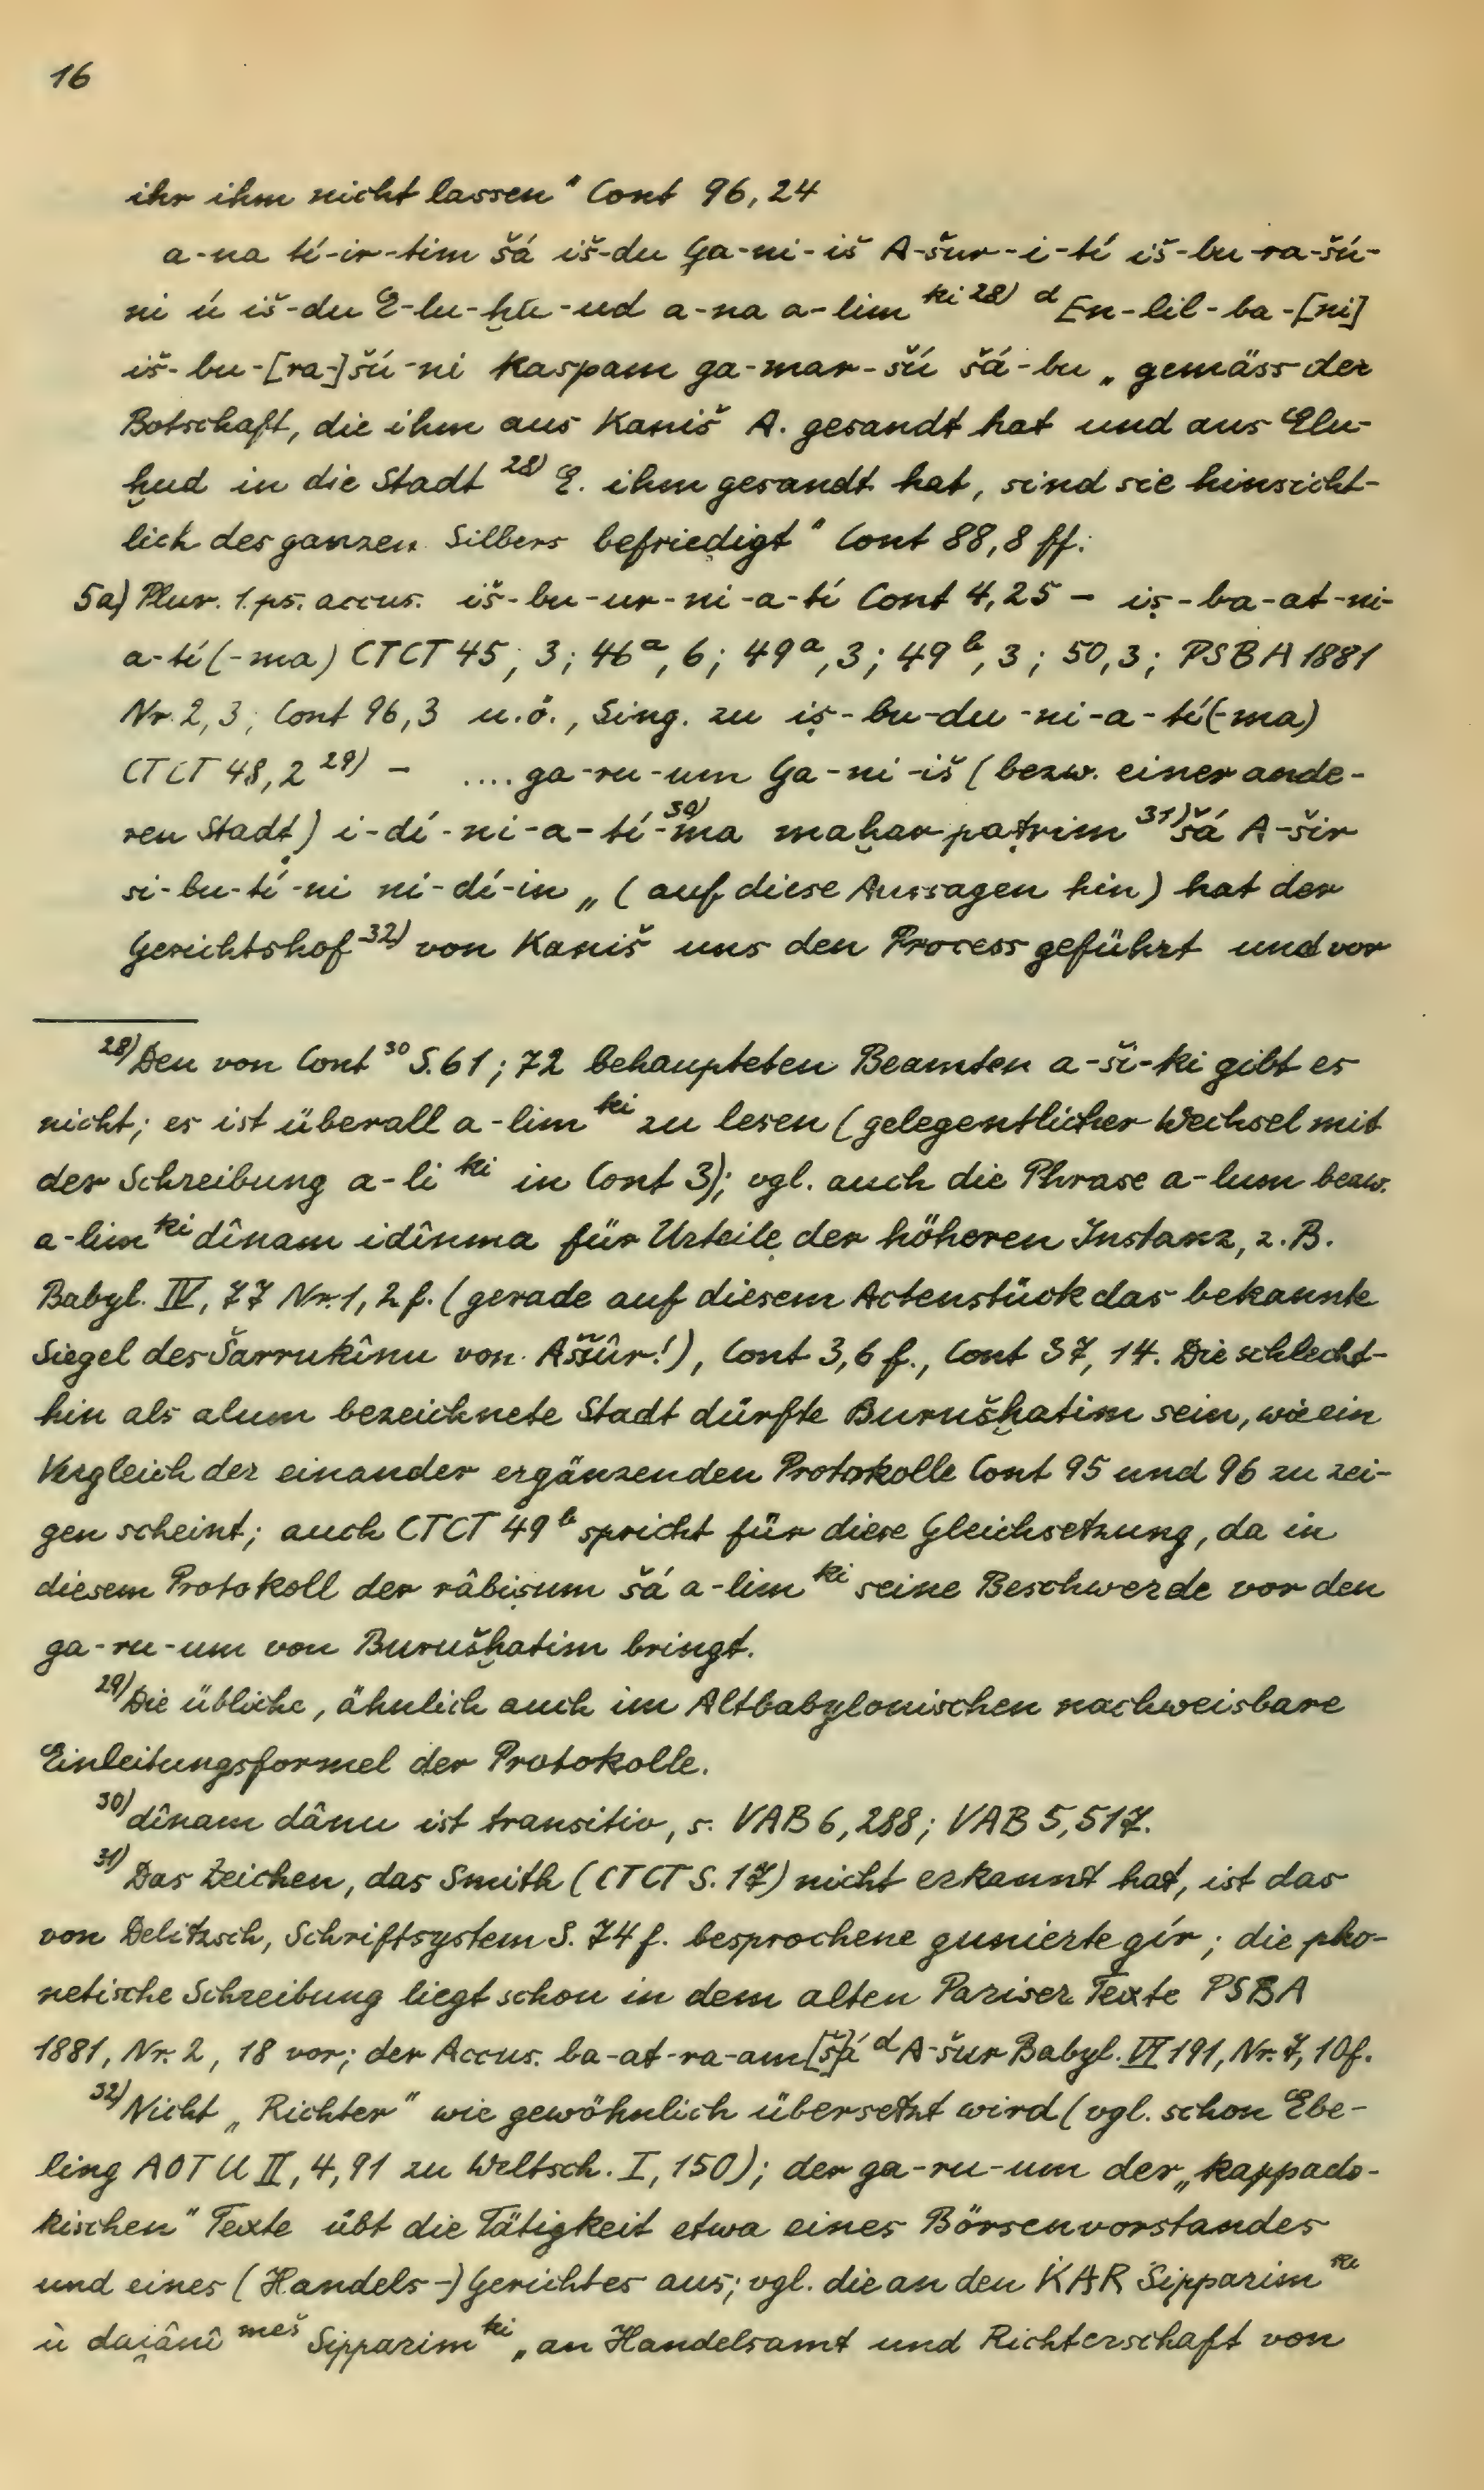 16
ihr ihm nicht lassen" Cont 96, 24
a-na tí-ir-tim šá iš-du Ga-ni-iš A-šur-i-tí iš-bu-ra-šú-
ni ú iš-du E-lu-ḫu-ud a-na a-lim ᵏⁱ ²⁸⁾ ᵈEn-lil-ba-[ni]
iš-bu-[ra-]šú-ni kaspam ga-mar-šú šá-bu „gemäss der
Botschaft, die ihm aus Kaniš A. gesandt hat und aus Elu-
ḫud in die Stadt ²⁸⁾ E. ihm gesandt hat, sind sie hinsicht-
lich des ganzen Silbers befriedigt" Cont 88, 8 ff.
5a) Plur. 1. ps. accus. iš-bu-ur-ni-a-tí Cont 4, 25 – iṣ-ba-at-ni-
a-tí(-ma) CTCT 45, 3; 46ᵃ, 6; 49ᵃ, 3; 49ᵇ, 3; 50, 3; PSBA 1881
Nr. 2, 3; Cont 96, 3 u.ö., Sing. zu iṣ-bu-du-ni-a-tí(-ma)
CTCT 48, 2 ²⁹⁾ – ....ga-ru-um Ga-ni-iš (bezw. einer ande-
ren Stadt) i-dí-ni-a-tí-ma ³⁰⁾ maḫar paṭrim ³¹⁾ šá A-šir
si-bu-tí-ni ni-dí-in „(auf diese Aussagen hin) hat der
Gerichtshof ³²⁾ von Kaniš uns den Process geführt und vor
²⁸⁾ Den von Cont ³⁰ S. 61; 72 behaupteten Beamten a-ši-ki gibt es
nicht; es ist überall a-lim ᵏⁱ zu lesen (gelegentlicher Wechsel mit
der Schreibung a-li ᵏⁱ in Cont 3); vgl. auch die Phrase a-lum bezw.
a-lim ᵏⁱ dînam idînma für Urteile der höheren Instanz, z. B.
Babyl. IV, 77 Nr. 1, 2 f. (gerade auf diesem Actenstück das bekannte
Siegel des Šarrukînu von Aššûr!), Cont 3, 6 f., Cont 37, 14. Die schlecht-
hin als alum bezeichnete Stadt dürfte Burušḫatim sein, wie ein
Vergleich der einander ergänzenden Protokolle Cont 95 und 96 zu zei-
gen scheint; auch CTCT 49ᵇ spricht für diese Gleichsetzung, da in
diesem Protokoll der râbiṣum šá a-lim ᵏⁱ seine Beschwerde vor den
ga-ru-um von Burušḫatim bringt.
²⁹⁾ Die übliche, ähnlich auch im Altbabylonischen nachweisbare
Einleitungsformel der Protokolle.
³⁰⁾ dînam dânu ist transitiv, s. VAB 6, 288; VAB 5, 517.
³¹⁾ Das Zeichen, das Smith (CTCT S. 17) nicht erkannt hat, ist das
von Delitzsch, Schriftsystem S. 74 f. besprochene gunierte gír; die pho-
netische Schreibung liegt schon in dem alten Pariser Texte PSBA
1881, Nr. 2, 18 vor; der Accus. ba-at-ra-am [š]á ᵈA-šur Babyl. VI 191, Nr. 7, 10 f.
³²⁾ Nicht „Richter" wie gewöhnlich übersetzt wird (vgl. schon Ebe-
ling AOTU II, 4, 91 zu Weltsch. I, 150); der ga-ru-um der „kappado-
kischen" Texte übt die Tätigkeit etwa eines Börsenvorstandes
und eines (Handels-) Gerichtes aus; vgl. die an den KAR Sipparim ᵏⁱ
ù dai̯ânî ᵐᵉˢ̌ Sipparim ᵏⁱ „an Handelsamt und Richterschaft von